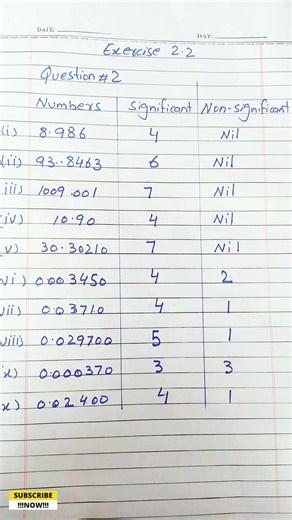 DATE:
DAY:
Exercise 2.2
Question #2
Numbers Significant Non-significant
(i) 8.986 4 Nil
(ii) 93..8463 6 Nil
iii) 1009.001 7 Nil
iv) 10.90 4 Nil
v) 30.30210 7 Nil
vi) 0.003450 4 2
vii) 0.03710 4 1
viii) 0.029700 5 1
ix) 0.000370 3 3
x) 0.02400 4 1
SUBSCRIBE
!!!NOW!!!